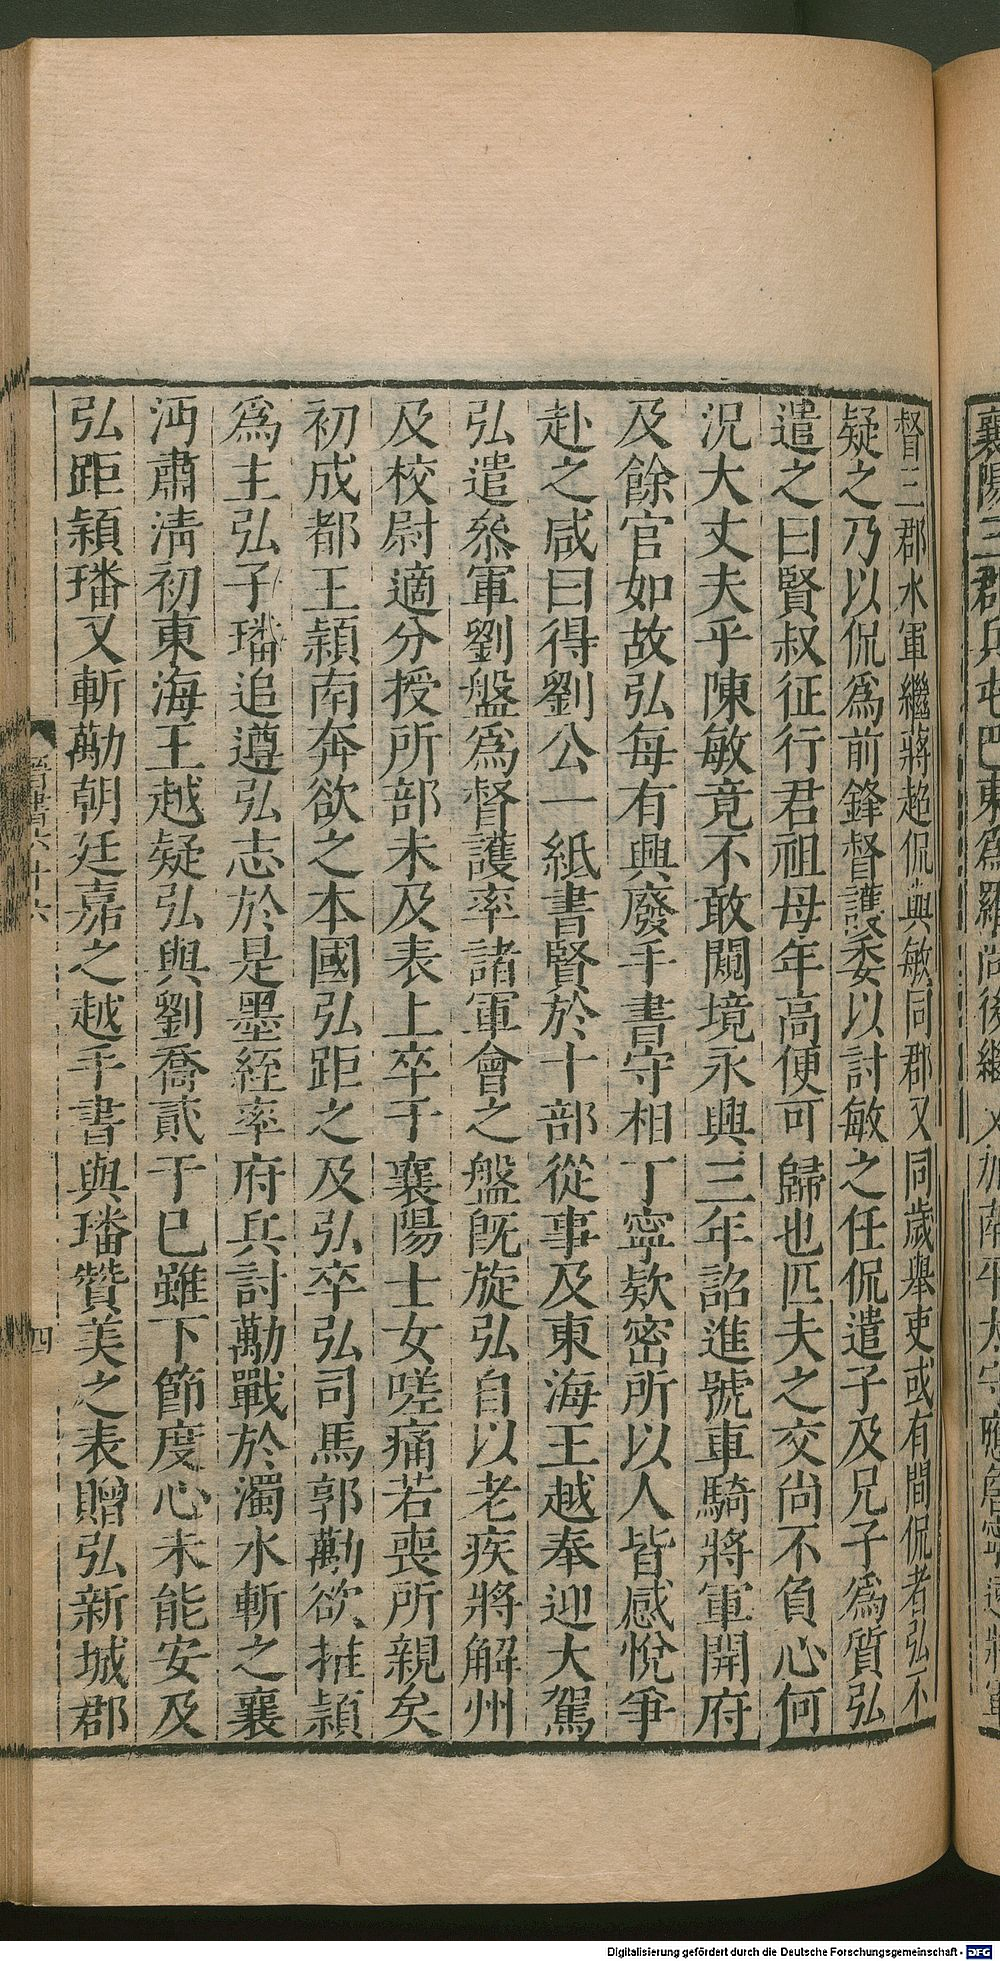 襄陽三郡兵屯巴東爲羅尚後繼又加南平太守應詹寧遠將軍
督三郡水軍繼蔣超侃與敏同郡又同歲舉吏或有間侃者弘不
疑之乃以侃爲前鋒督護委以討敏之任侃遣子及兄子爲質弘
遣之曰賢叔征行君祖母年高便可歸也匹夫之交尚不負心何
況大丈夫乎陳敏竟不敢闚境永興三年詔進號車騎將軍開府
及餘官如故弘每有興廢手書守相丁寧欵密所以人皆感悅爭
赴之咸曰得劉公一紙書賢於十部從事及東海王越奉迎大駕
弘遣叅軍劉盤爲督護率諸軍會之盤旣旋弘自以老疾將解州
及校尉適分授所部未及表上卒于襄陽士女嗟痛若喪所親矣
初成都王穎南奔欲之本國弘距之及弘卒弘司馬郭勱欲推穎
爲主弘子璠追遵弘志於是墨絰率府兵討勱戰於濁水斬之襄
沔肅淸初東海王越疑弘與劉喬貳于已雖下節度心未能安及
弘距穎璠又斬勱朝廷嘉之越手書與璠贊美之表贈弘新城郡
晉書六十六
四
Digitalisierung gefördert durch die Deutsche Forschungsgemeinschaft - DFG